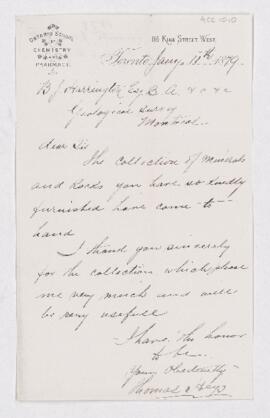 ACC 1010
ONTARIO SCHOOL
OF
CHEMISTRY
AND
PHARMACY
116 KING STREET WEST.
Toronto, Jany. 11th 1879.
B J Harrington Esq. B. A. &c &c
Geological Survey
Montreal.
Dear Sir
The collection of minerals
and Rocks you have so kindly
furnished have come to
hand
I thank you sincerely
for the collection, which please
me very much and will
be very usefull
I have the honor
to be
Your Obediently
Thomas Heys